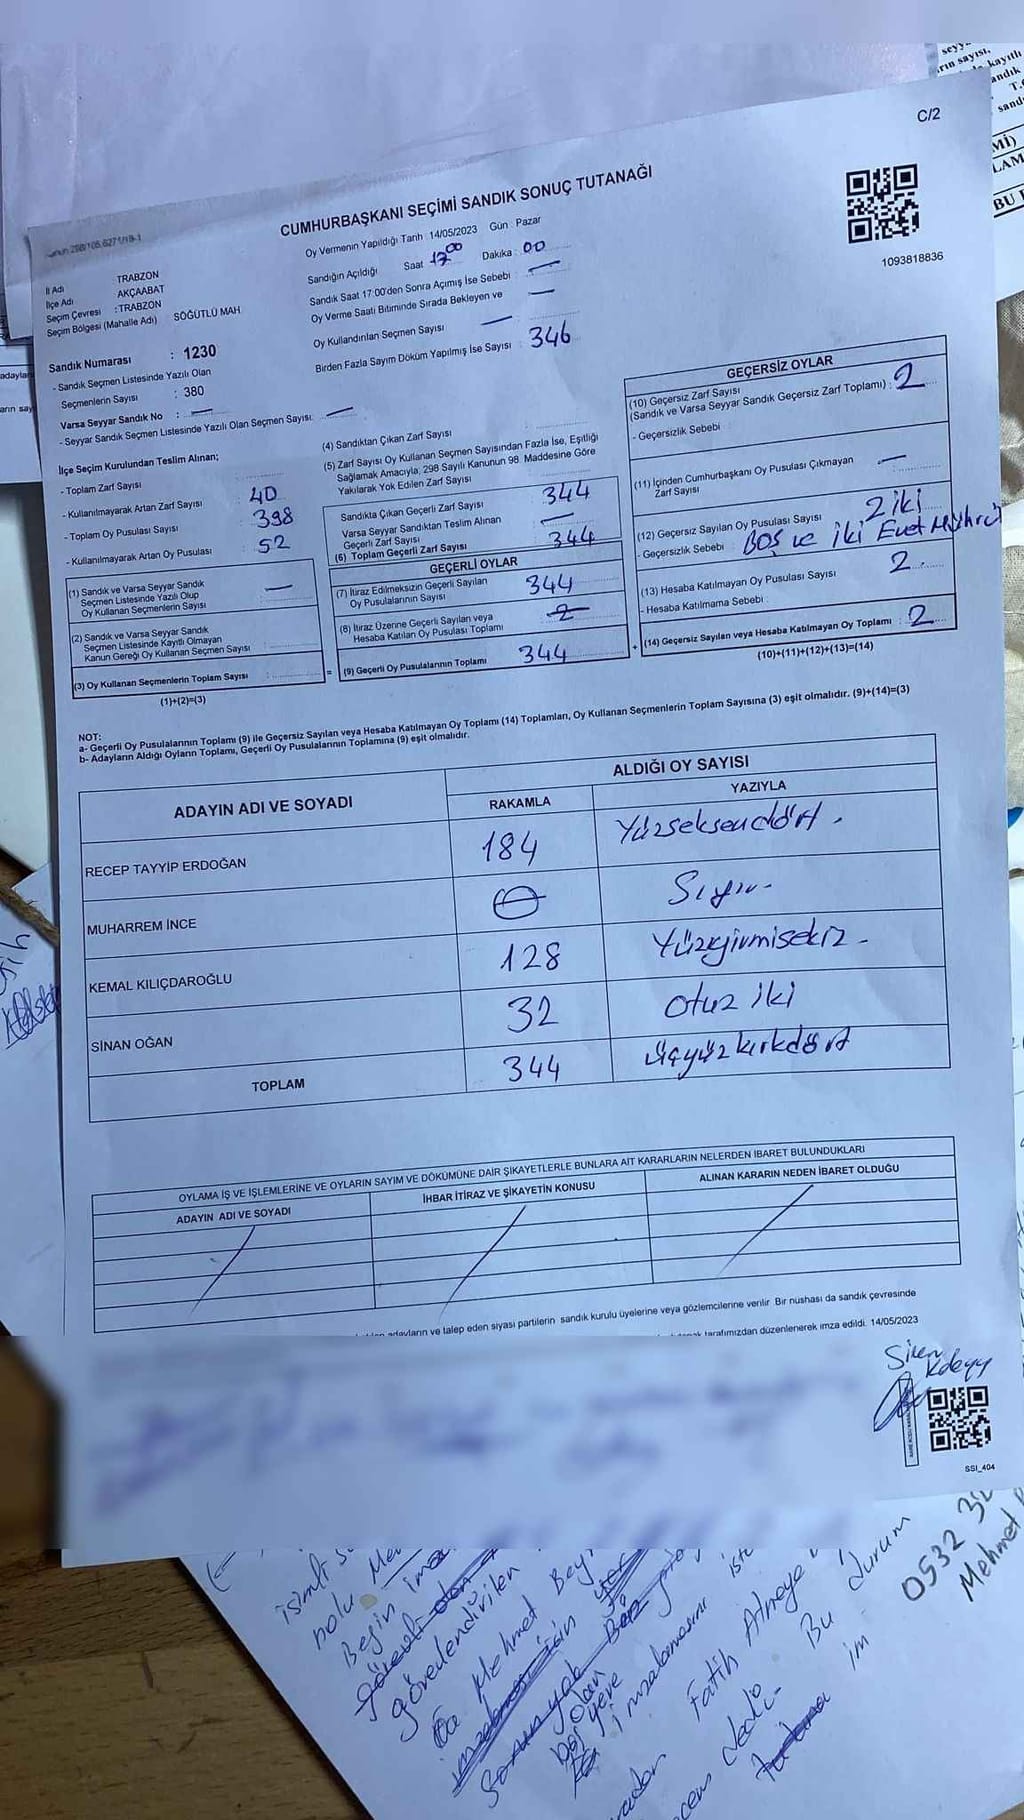 C/2
CUMHURBAŞKANI SEÇİMİ SANDIK SONUÇ TUTANAĞI
1093818836
İl Adı TRABZON
İlçe Adı AKÇAABAT
Seçim Çevresi :TRABZON
Seçim Bölgesi (Mahalle Adı) SÖĞÜTLÜ MAH
Sandık Numarası : 1230
- Sandık Seçmen Listesinde Yazılı Olan
Seçmenlerin Sayısı : 380
Varsa Seyyar Sandık No :
- Seyyar Sandık Seçmen Listesinde Yazılı Olan Seçmen Sayısı:
Oy Vermenin Yapıldığı Tarih : 14/05/2023 Gün : Pazar
Sandığın Açıldığı Saat 17:00 Dakika : 00
Sandık Saat 17:00'den Sonra Açımış İse Sebebi :
Oy Verme Saati Bitiminde Sırada Bekleyen ve
Oy Kullandırılan Seçmen Sayısı
Birden Fazla Sayım Döküm Yapılmış İse Sayısı : 346
İlçe Seçim Kurulundan Teslim Alınan;
- Toplam Zarf Sayısı
- Kullanılmayarak Artan Zarf Sayısı 40
- Toplam Oy Pusulası Sayısı 398
- Kullanılmayarak Artan Oy Pusulası 52
(1) Sandık ve Varsa Seyyar Sandık
Seçmen Listesinde Yazılı Olup
Oy Kullanan Seçmenlerin Sayısı
(2) Sandık ve Varsa Seyyar Sandık
Seçmen Listesinde Kayıtlı Olmayan
Kanun Gereği Oy Kullanan Seçmen Sayısı
(3) Oy Kullanan Seçmenlerin Toplam Sayısı :
(1)+(2)=(3)
(4) Sandıktan Çıkan Zarf Sayısı
(5) Zarf Sayısı Oy Kullanan Seçmen Sayısından Fazla İse, Eşitliği
Sağlamak Amacıyla, 298 Sayılı Kanunun 98. Maddesine Göre
Yakılarak Yok Edilen Zarf Sayısı
Sandıkta Çıkan Geçerli Zarf Sayısı 344
Varsa Seyyar Sandıktan Teslim Alınan
Geçerli Zarf Sayısı
(6) Toplam Geçerli Zarf Sayısı 344
GEÇERLİ OYLAR
(7) İtiraz Edilmeksizin Geçerli Sayılan
Oy Pusulalarının Sayısı 344
(8) İtiraz Üzerine Geçerli Sayılan veya
Hesaba Katılan Oy Pusulası Toplamı
(9) Geçerli Oy Pusulalarının Toplamı 344
GEÇERSİZ OYLAR
(10) Geçersiz Zarf Sayısı
(Sandık ve Varsa Seyyar Sandık Geçersiz Zarf Toplamı) : 2
- Geçersizlik Sebebi :
(11) İçinden Cumhurbaşkanı Oy Pusulası Çıkmayan
Zarf Sayısı
(12) Geçersiz Sayılan Oy Pusulası Sayısı 2 iki
- Geçersizlik Sebebi : BOŞ ve iki Evet Mührü
(13) Hesaba Katılmayan Oy Pusulası Sayısı 2
- Hesaba Katılmama Sebebi :
(14) Geçersiz Sayılan veya Hesaba Katılmayan Oy Toplamı : 2
(10)+(11)+(12)+(13)=(14)
NOT:
a- Geçerli Oy Pusulalarının Toplamı (9) ile Geçersiz Sayılan veya Hesaba Katılmayan Oy Toplamı (14) Toplamları, Oy Kullanan Seçmenlerin Toplam Sayısına (3) eşit olmalıdır. (9)+(14)=(3)
b- Adayların Aldığı Oyların Toplamı, Geçerli Oy Pusulalarının Toplamına (9) eşit olmalıdır.
ADAYIN ADI VE SOYADI ALDIĞI OY SAYISI
RAKAMLA YAZIYLA
RECEP TAYYİP ERDOĞAN 184 Yüzseksendört
MUHARREM İNCE 0 Sıfır
KEMAL KILIÇDAROĞLU 128 Yüzyirmisekiz
SİNAN OĞAN 32 otuz iki
TOPLAM 344 üçyüzkırkdört
OYLAMA İŞ VE İŞLEMLERİNE VE OYLARIN SAYIM VE DÖKÜMÜNE DAİR ŞİKAYETLERLE BUNLARA AİT KARARLARIN NELERDEN İBARET BULUNDUKLARI
ADAYIN ADI VE SOYADI İHBAR İTİRAZ VE ŞİKAYETİN KONUSU ALINAN KARARIN NEDEN İBARET OLDUĞU
adayların ve talep eden siyasi partilerin sandık kurulu üyelerine veya gözlemcilerine verilir. Bir nüshası da sandık çevresinde
tarafımızdan düzenlenerek imza edildi. 14/05/2023
SSI_404
isimli
Beyin
görevlendirilen
Mehmet Bey
olan
boş yere
imzalamasını
Fatih Atmaya
Bu durum
0532
Mehmet